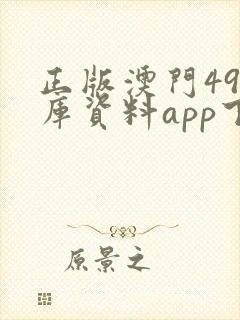 正版澳門49
库資料app下
原景之